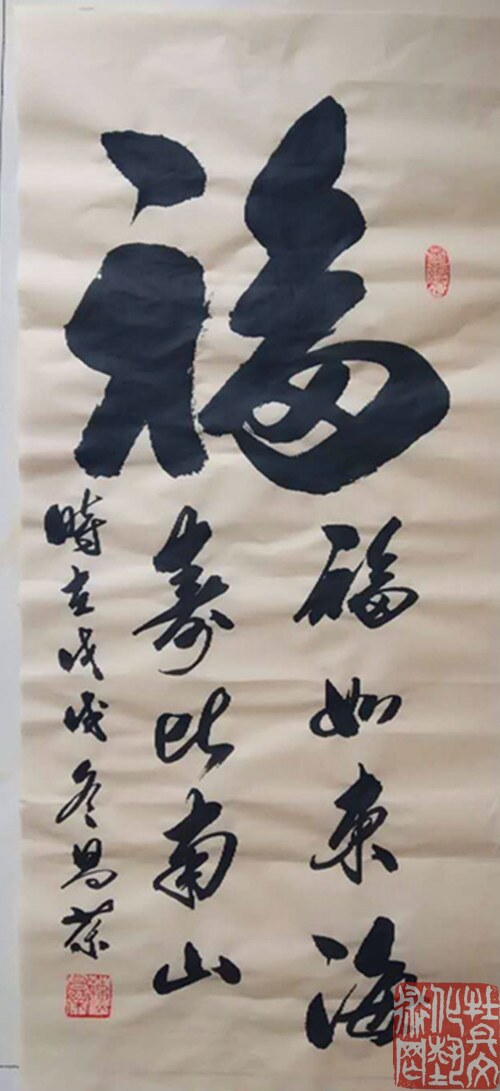 福
福如東海
壽比南山
時在戊戌冬